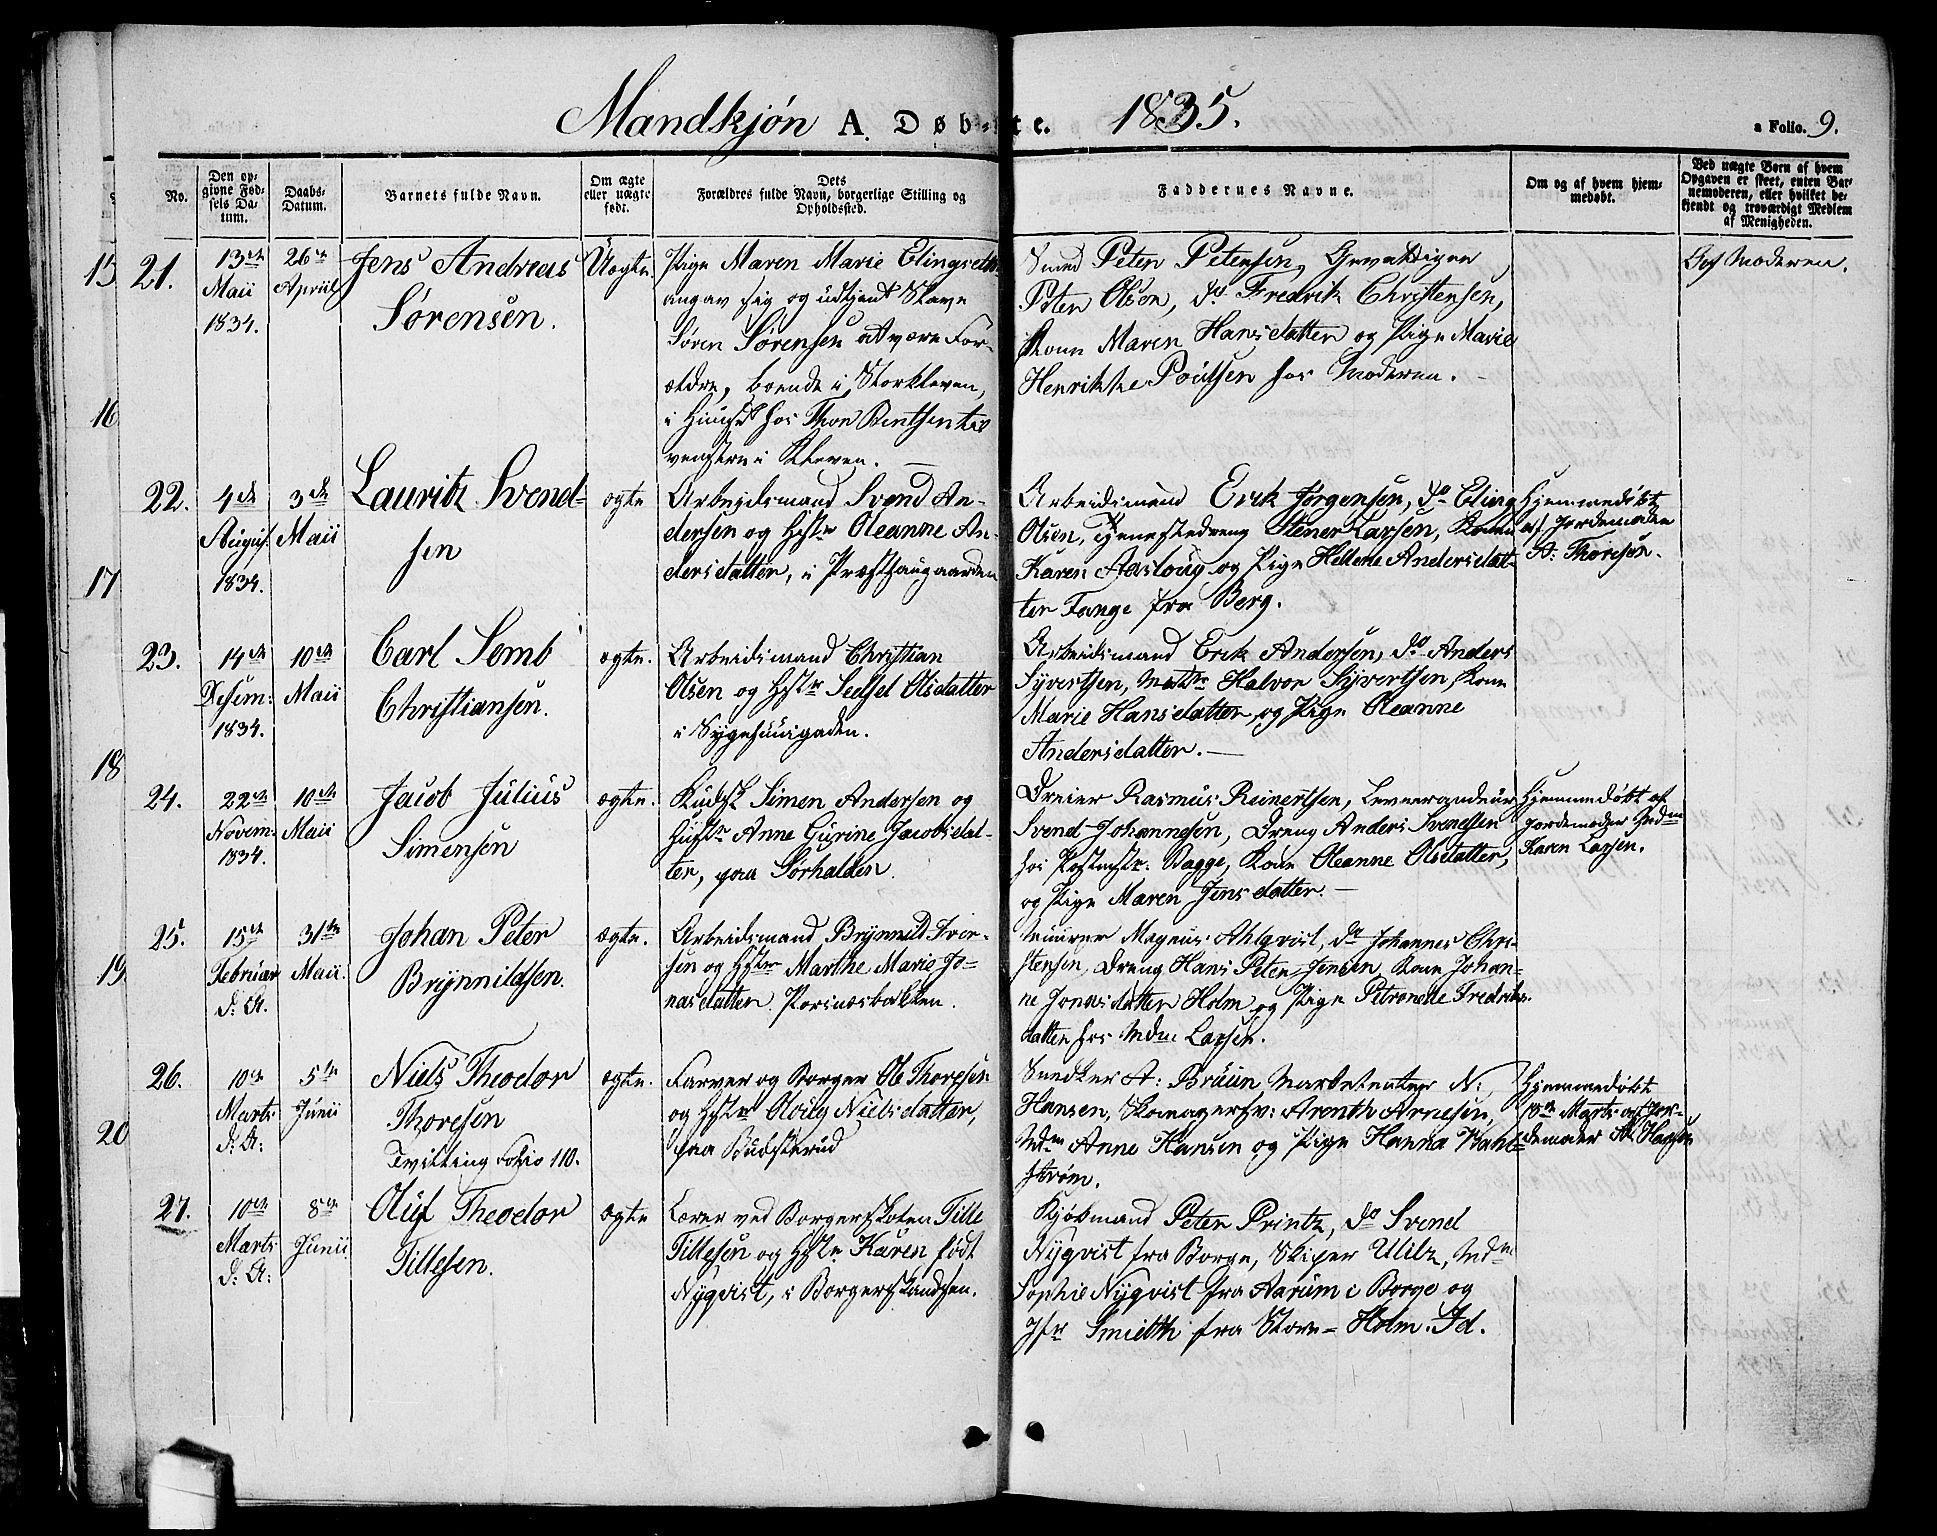 Mandskjøn A. Døbte. 1835.
a Folio. 9.
No.
Den op-
givne Fød-
sels Da-
tum.
Daabs-
Datum.
Barnets fulde Navn.
Om ægte
eller uægte
født.
Dets
Forældres fulde Navn, borgerlige Stilling og
Opholdssted.
Faddernes Navne.
Om og af hvem hjem-
medøbt.
Ved uægte Børn af hvem
Opgaven er skeet, enten Bar-
nemoderen, eller hvilket be-
kjendt og troværdigt Medlem
af Menigheden.
15
16
17
18
19
20
21.
13de
Maii
1834.
26de
April
Jens Andreas
Sørensen.
Uægte.
Pige Maren Marie Elingsdtr
angav sig og udtjent Slave
Søren Sørensen at være For-
ældre, boende i Storkleven,
i Huus hos Thor Bentsen til
venstre i Kleven.
Smed Peter Petersen, Gevaldiger
Peter Olsen, do Fredrik Christensen,
Kone Maren Hansdatter og Pige Marie
Henrikke Poulsen hos Moderen.
Af Moderen.
22.
4de
August
1834.
3de
Maii
Lauritz Svend-
sen
ægte
Arbeidsmand Svend An-
dersen og Hstr Oleanne An-
dersdatter, i Præsthaugaarden
Arbeidsmand Erik Jørgensen, do Eling
Olsen, Tjenestedreng Stener Larsen, Kone
Karen Aasloug og Pige Hellene Andersdat-
ter Tange fra Berg.
Hjemmedøbt
af Jordemoder
B. Thoresen.
23.
14de
Desem:
1834.
10de
Maii
Carl Semb
Christiansen.
ægte.
Arbeidsmand Christian
Olsen og Hstr Sedsel Olsdatter
i Sygehuusgaden.
Arbeidsmand Erik Andersen, do Anders
Syvertsen, Matr Halvor Syvertsen, Kone
Marie Hansdatter og Pige Oleanne
Andersdatter.
24.
22de
Novem:
1834.
10de
Maii
Jacob Julius
Simensen
ægte.
Kudsk Simen Andersen og
Hustr Anne Gurine Jacobsdat-
ter, paa Sørhalden.
Dreier Rasmus Reinertsen, Leverandeur
Svend Johannesen, Dreng Anders Svendsen
hos Postmstr. Bagge, Kone Oleanne Olsdatter,
og Pige Maren Jensdatter.
Hjemmedøbt af
Jordemoder Mdm
Karen Larsen.
25.
15de
Februar
d: A.
31te
Maii.
Johan Peter
Brynnildsen.
ægte.
Arbeidsmand Brynnild Iver-
sen og Hstr Marthe Marie Jo-
nasdatter Porsnæsbakken.
Muurer Magnus Ahlqvist, do Johannes Chri-
stensen, Dreng Hans Peter Jensen, Kone Johan-
ne Jonasdatter Holm og Pige Petronelle Fredriks-
datter hos Mdm Larsen.
26.
10de
Marts
d: A:
5te
Junii
Niels Theodor
Thoresen
Tvilling Folio 110.
ægte.
Farver og Borger Ole Thoresen
og Hstr Olvig Nielsdatter,
paa Budsterud
Snedker A: Bruun, Marketenter N:
Hansen, Skomagersv: Arenth Arnesen,
Mdm Anne Hansen og Pige Hanna Wahl-
strøm.
Hjemmedøbt
13de Marts af Jor-
demoder A. Hansen
27.
10de
Marts
d: A:
8de
Junii
Oluf Theodor
Tillesen.
ægte
Lærer ved Borgerskolen Tille
Tillesen og Hstr Karen født
Nyqvist, i Borgerskandsen.
Kjøbmand Peter Printz, do Svend
Nyqvist fra Borge, Skiper Ulitz, Mdm
Sophie Nyqvist fra Aarum i Borge og
Jfr Smidth fra Store-Holm. Id.